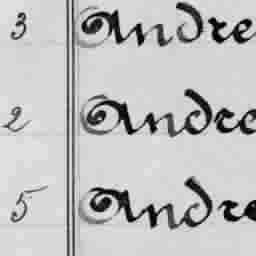 3 Andre
2 Andre
5 Andre